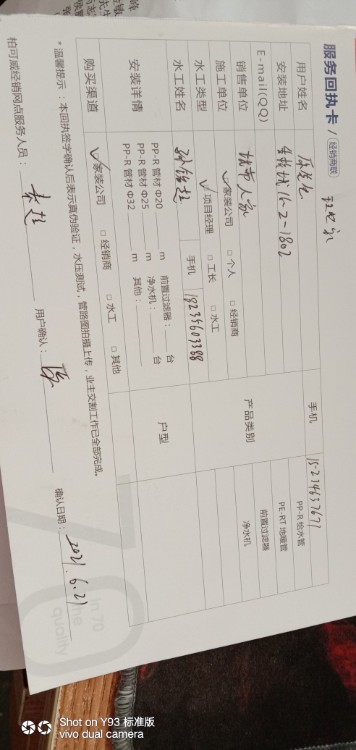 服务回执卡 / 经销商联
用户姓名 手机 15234637671
安装地址 16-2-1802
E-mail(QQ)
销售单位 城市人家 产品类别 PP-R 给水管
PE-RT 地暖管
前置过滤器
净水机
施工单位 ✓家装公司 □个人 □经销商
水工类型 ✓项目经理 □工长 □水工
水工姓名 手机 18234603388
安装详情 PP-R 管材 Φ20 m 前置过滤器: 台 户型
PP-R 管材 Φ25 m 净水机: 台
PP-R 管材 Φ32 m 其他:
购买渠道 ✓家装公司 □经销商 □水工 □其他
*温馨提示:本回执签字确认后表示真伪验证,水压测试,管路图拍摄上传,业主交割工作已全部完成。
柏可威经销网点服务人员: 用户确认: 确认日期: 2021.6.21
Shot on Y93 标准版
vivo dual camera